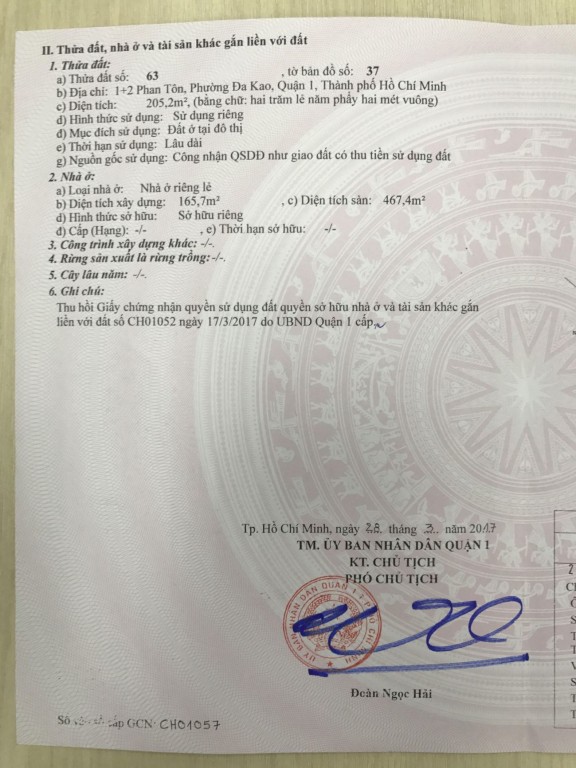 II. Thửa đất, nhà ở và tài sản khác gắn liền với đất
1. Thửa đất:
a) Thửa đất số: 63 , tờ bản đồ số: 37
b) Địa chỉ: 1+2 Phan Tôn, Phường Đa Kao, Quận 1, Thành phố Hồ Chí Minh
c) Diện tích: 205,2m², (bằng chữ: hai trăm lẻ năm phẩy hai mét vuông)
d) Hình thức sử dụng: Sử dụng riêng
đ) Mục đích sử dụng: Đất ở tại đô thị
e) Thời hạn sử dụng: Lâu dài
g) Nguồn gốc sử dụng: Công nhận QSDĐ như giao đất có thu tiền sử dụng đất
2. Nhà ở:
a) Loại nhà ở: Nhà ở riêng lẻ
b) Diện tích xây dựng: 165,7m² , c) Diện tích sàn: 467,4m²
d) Hình thức sở hữu: Sở hữu riêng
đ) Cấp (Hạng): -/- , e) Thời hạn sở hữu: -/-
3. Công trình xây dựng khác: -/-.
4. Rừng sản xuất là rừng trồng:-/-.
5. Cây lâu năm: -/-.
6. Ghi chú:
Thu hồi Giấy chứng nhận quyền sử dụng đất quyền sở hữu nhà ở và tài sản khác gắn
liền với đất số CH01052 ngày 17/3/2017 do UBND Quận 1 cấp.
Tp. Hồ Chí Minh, ngày 28 tháng 3 năm 2017
TM. ỦY BAN NHÂN DÂN QUẬN 1
KT. CHỦ TỊCH
PHÓ CHỦ TỊCH
ỦY BAN NHÂN DÂN QUẬN 1 T.P HỒ CHÍ MINH
Đoàn Ngọc Hải
Số cấp GCN: CH01057